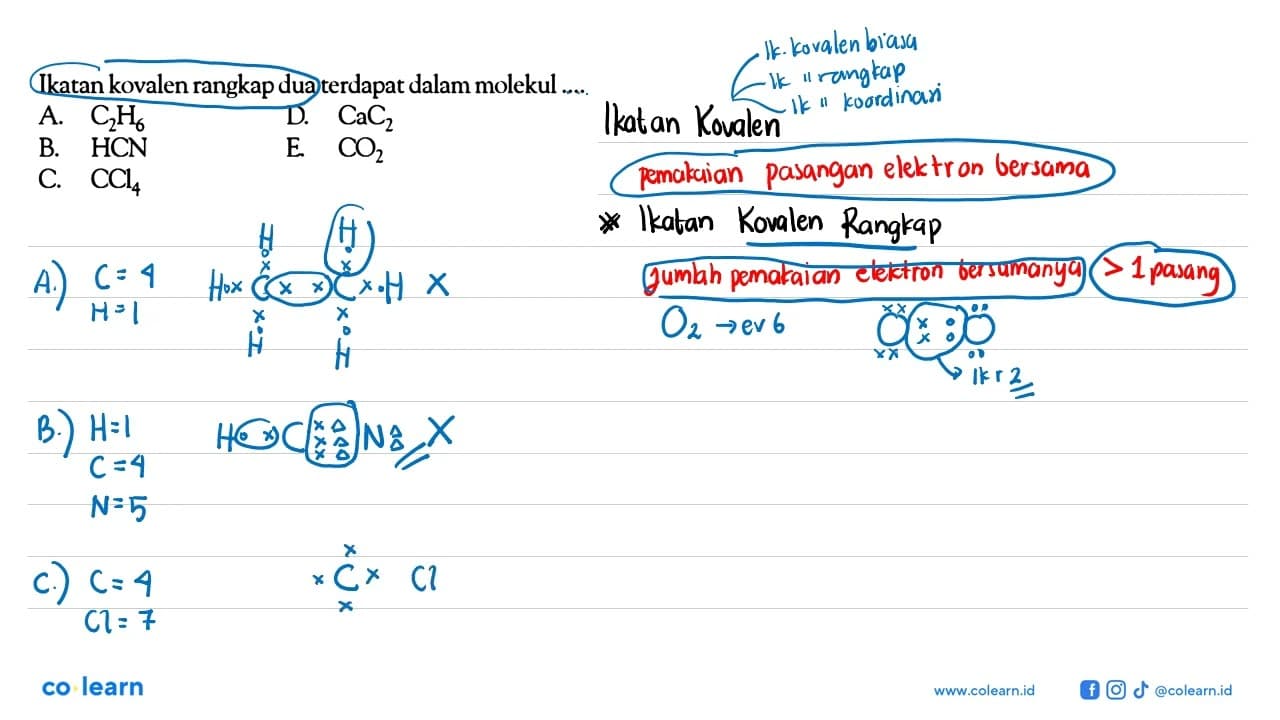 Ikatan kovalen rangkap dua terdapat dalam molekul ....
A. C₂H₆ D. CaC₂
B. HCN E. CO₂
C. CCl₄
Ik. kovalen biasa
Ik " rangkap
Ik " koordinasi
Ikatan Kovalen
pemakaian pasangan elektron bersama
* Ikatan Kovalen Rangkap
Jumlah pemakaian elektron bersamanya > 1 pasang
O₂ → ev 6
O xx xx O
Ik r 2
A.) C = 4
H = 1
H H
Hox C x x C x•H X
H H
B.) H = 1
C = 4
N = 5
H o x C xΔ xΔ xΔ N ΔΔ X
C.) C = 4
Cl = 7
x
x C x Cl
x
co learn
www.colearn.id
@colearn.id